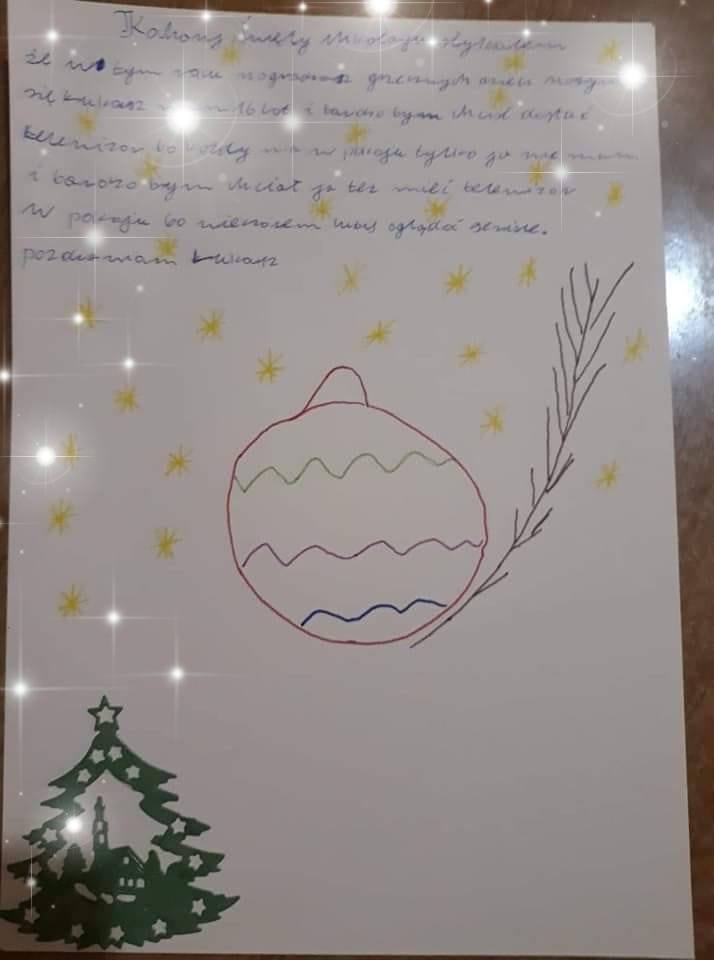 Kohany Święty Mikołaju słyszałem
że w tym roku nagradzasz grzecznych dzieci nazywam
się Łukasz mam 16 lat i bardzo bym chciał dostać
telewizor bo każdy ma w pokoju tylko ja nie mam
i bardzo bym chciał ja też mieć telewizor
w pokoju bo wieczorem lubię oglądać seriale.
pozdrawiam Łukasz